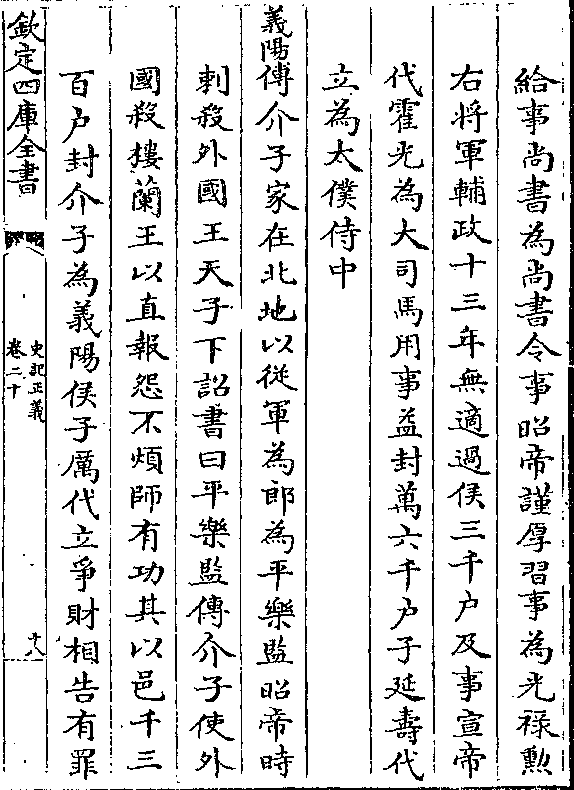 給事尚書為尚書令事昭帝謹厚習事為光祿勲
右将軍輔政十三年無適過侯三千户及事宣帝
代霍光為大司馬用事益封萬六千户子延壽代
立為太僕侍中
義陽傅介子家在北地以從軍為郎為平樂監昭帝時
刺殺外國王天子下詔書曰平樂監傅介子使外
國殺樓蘭王以直報怨不煩師有功其以邑千三
百户封介子為義陽侯子厲代立爭財相告有罪
欽定四庫全書
史記正義
卷二十
十八